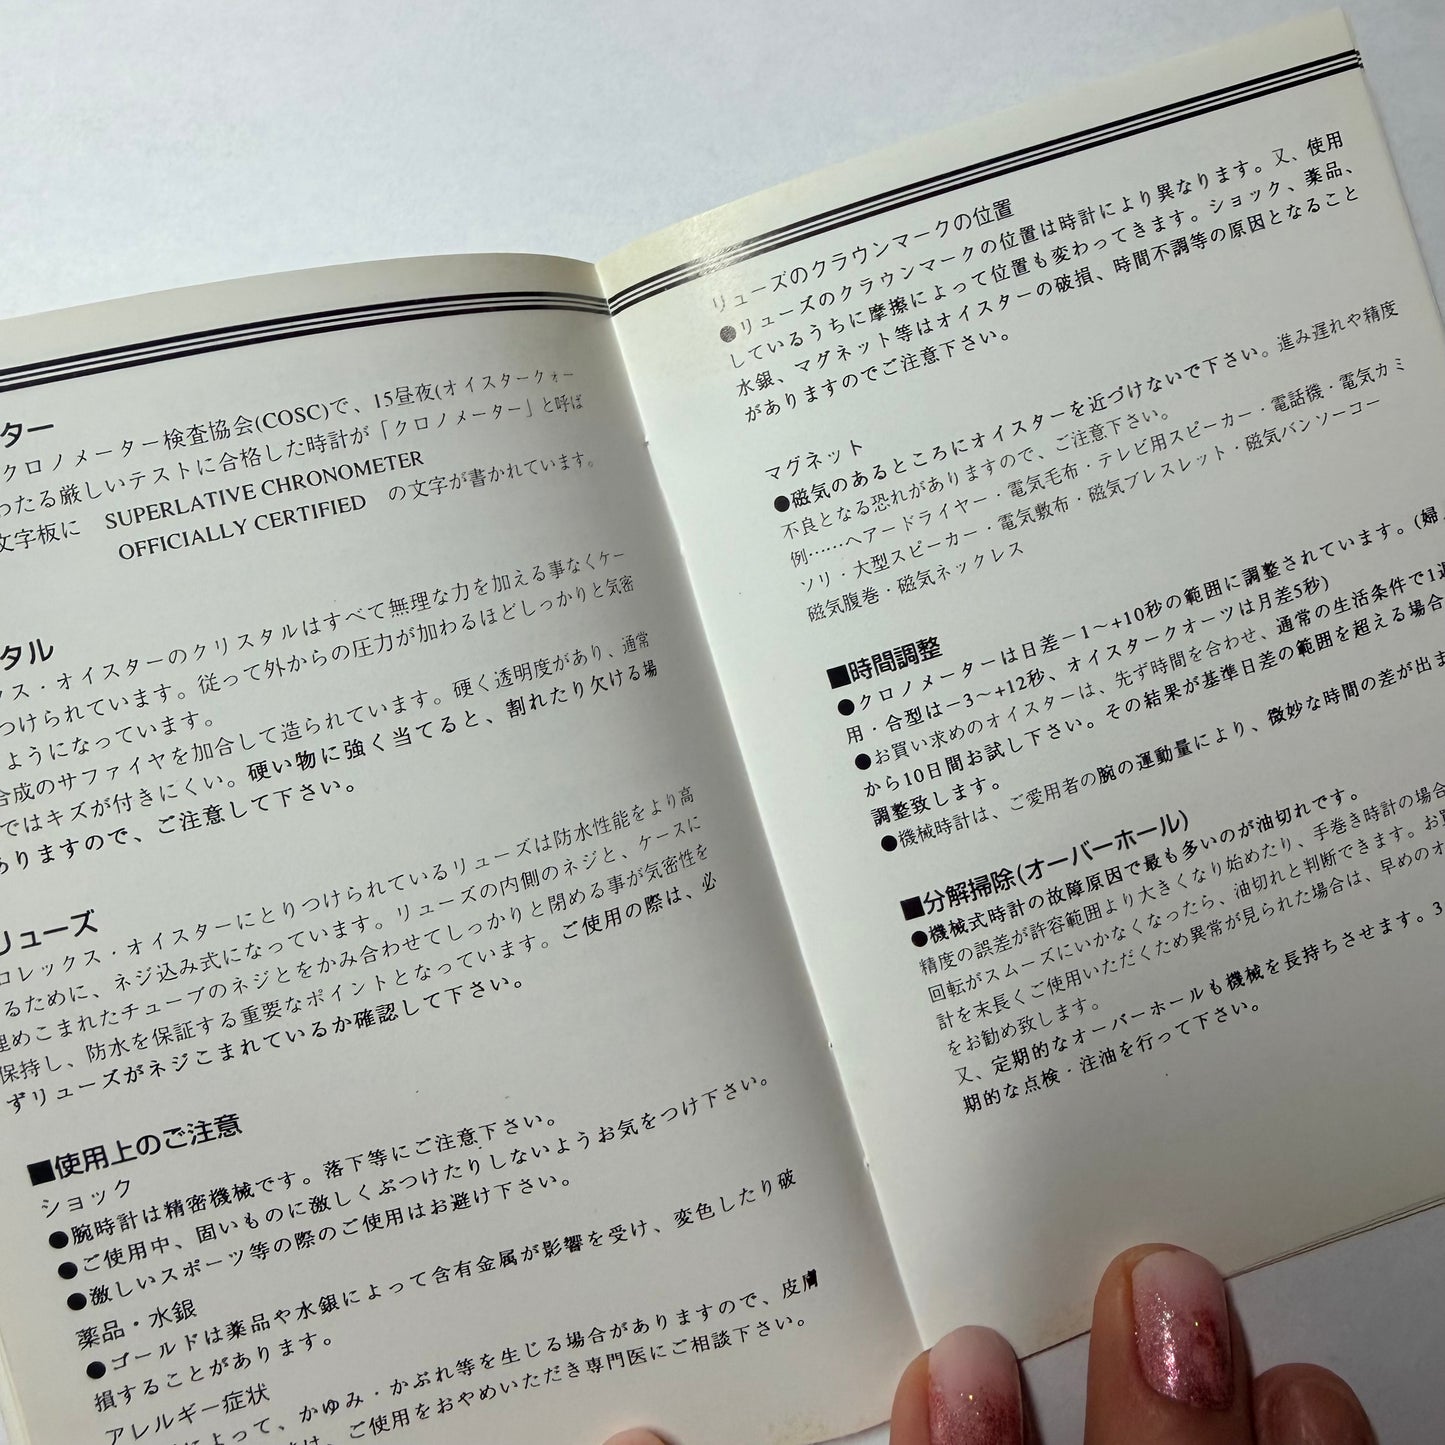 ター
クロノメーター検査協会(COSC)で、15昼夜(オイスタークォー
ったる厳しいテストに合格した時計が「クロノメーター」と呼ば
文字板に SUPERLATIVE CHRONOMETER
OFFICIALLY CERTIFIED の文字が書かれています。
タル
クス・オイスターのクリスタルはすべて無理な力を加える事なくケー
つけられています。従って外からの圧力が加わるほどしっかりと気密
ようになっています。
合成のサファイヤを加合して造られています。硬く透明度があり、通常
ではキズが付きにくい。硬い物に強く当てると、割れたり欠ける場
ありますので、ご注意して下さい。
リューズ
ロレックス・オイスターにとりつけられているリューズは防水性能をより高
るために、ネジ込み式になっています。リューズの内側のネジと、ケースに
埋めこまれたチューブのネジとをかみ合わせてしっかりと閉める事が気密性を
保持し、防水を保証する重要なポイントとなっています。ご使用の際は、必
ずリューズがネジこまれているか確認して下さい。
■使用上のご注意
ショック
●腕時計は精密機械です。落下等にご注意下さい。
●ご使用中、固いものに激しくぶつけたりしないようお気をつけ下さい。
●激しいスポーツ等の際のご使用はお避け下さい。
薬品・水銀
●ゴールドは薬品や水銀によって含有金属が影響を受け、変色したり破
損することがあります。
アレルギー症状
によって、かゆみ・かぶれ等を生じる場合がありますので、皮膚
は、ご使用をおやめいただき専門医にご相談下さい。
リューズのクラウンマークの位置
●リューズのクラウンマークの位置は時計により異なります。又、使用
しているうちに摩擦によって位置も変わってきます。ショック、薬品、
水銀、マグネット等はオイスターの破損、時間不調等の原因となること
がありますのでご注意下さい。
マグネット
●磁気のあるところにオイスターを近づけないで下さい。進み遅れや精度
不良となる恐れがありますので、ご注意下さい。
例……ヘアードライヤー・電気毛布・テレビ用スピーカー・電話機・電気カミ
ソリ・大型スピーカー・電気敷布・磁気ブレスレット・磁気バンソーコー
磁気腹巻・磁気ネックレス
■時間調整
●クロノメーターは日差−1〜+10秒の範囲に調整されています。(婦
用・合型は−3〜+12秒、オイスタークオーツは月差5秒)
●お買い求めのオイスターは、先ず時間を合わせ、通常の生活条件で1週
から10日間お試し下さい。その結果が基準日差の範囲を超える場合
調整致します。
●機械時計は、ご愛用者の腕の運動量により、微妙な時間の差が出ま
■分解掃除(オーバーホール)
●機械式時計の故障原因で最も多いのが油切れです。
精度の誤差が許容範囲より大きくなり始めたり、手巻き時計の場合
回転がスムーズにいかなくなったら、油切れと判断できます。お買
計を末長くご使用いただくため異常が見られた場合は、早めのオ
をお勧め致します。
又、定期的なオーバーホールも機械を長持ちさせます。3
期的な点検・注油を行って下さい。